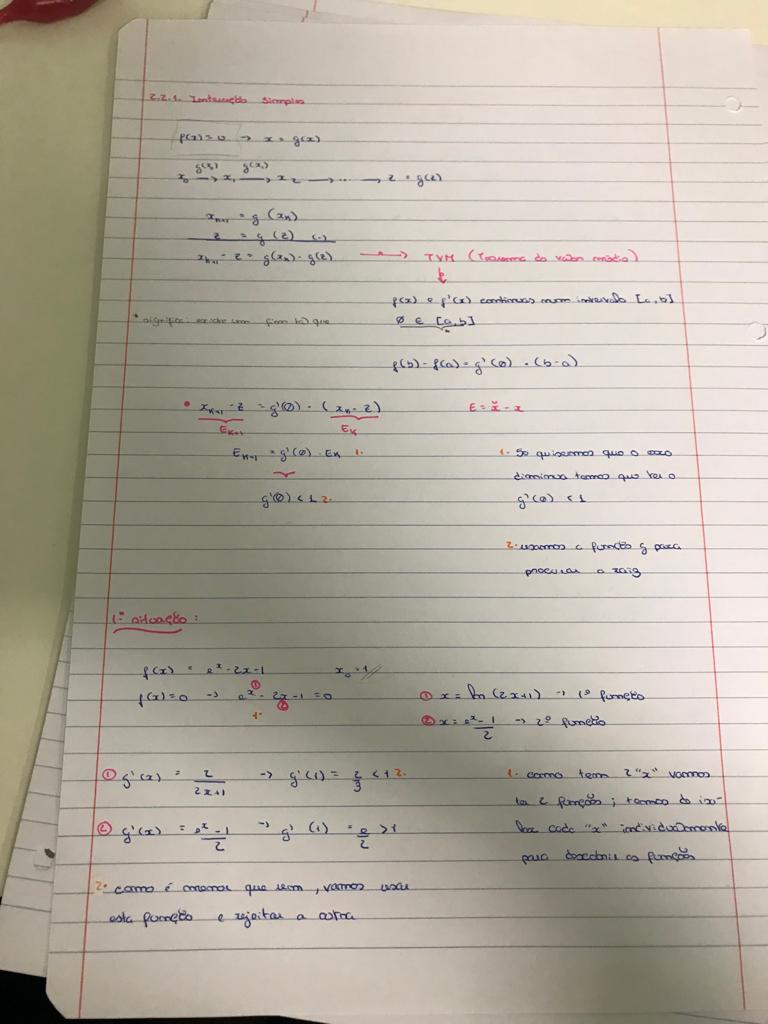 2.2.1. Interação Simples
f(x)=0 → x = g(x)
g(x₀) g(x₁)
x₀ → x₁ → x₂ → ... → z = g(z)
xₙ₊₁ = g (xₙ)
z = g (z) (-)
xₙ₊₁ - z = g(xₙ) - g(z) → TVM (Teorema do valor médio)
f(x) e f'(x) continuas num intervalo [a,b]
* significa: existe um
que
Ø ∈ [a,b]
f(b) - f(a) = g'(Ø) • (b-a)
• xₙ₊₁ - z = g'(Ø) • (xₙ - z) E = x̃ - x
Eₙ₊₁ Eₙ
Eₙ₊₁ = g'(Ø) . Eₙ 1. 1. Se quisermos que o erro
diminua temos que ter o
g'(Ø) < 1 2. g'(Ø) < 1
2. usamos a função g para
procurar a raiz
1.ª situação :
f(x) = eˣ - 2x - 1 x₀ = 1
f(x) = 0 → eˣ - 2x - 1 = 0 ① x = ln (2x+1) → 1º função
① ②
1. ② x = eˣ - 1 / 2 → 2º função
① g'(x) = 2 / 2x+1 → g'(1) = 2/3 < 1 2. 1. como tem 2 "x" vamos
ter 2 funções; temos de iso-
② g'(x) = eˣ - 1 / 2 → g' (1) = e/2 > 1 lar cada "x" individualmente
para descobrir as funções
2. como é menor que um, vamos usar
esta função e rejeitar a outra